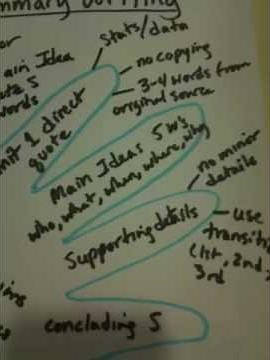 mmary Writing
or
stats/data
ain Idea
no copying
3-4 words from
original source
words
mit 1 direct
quote
Main Ideas 5 W's
who, what, when, where, why
no minor
details
supporting details
use
transiti
(1st, 2nd,
3rd
concluding S